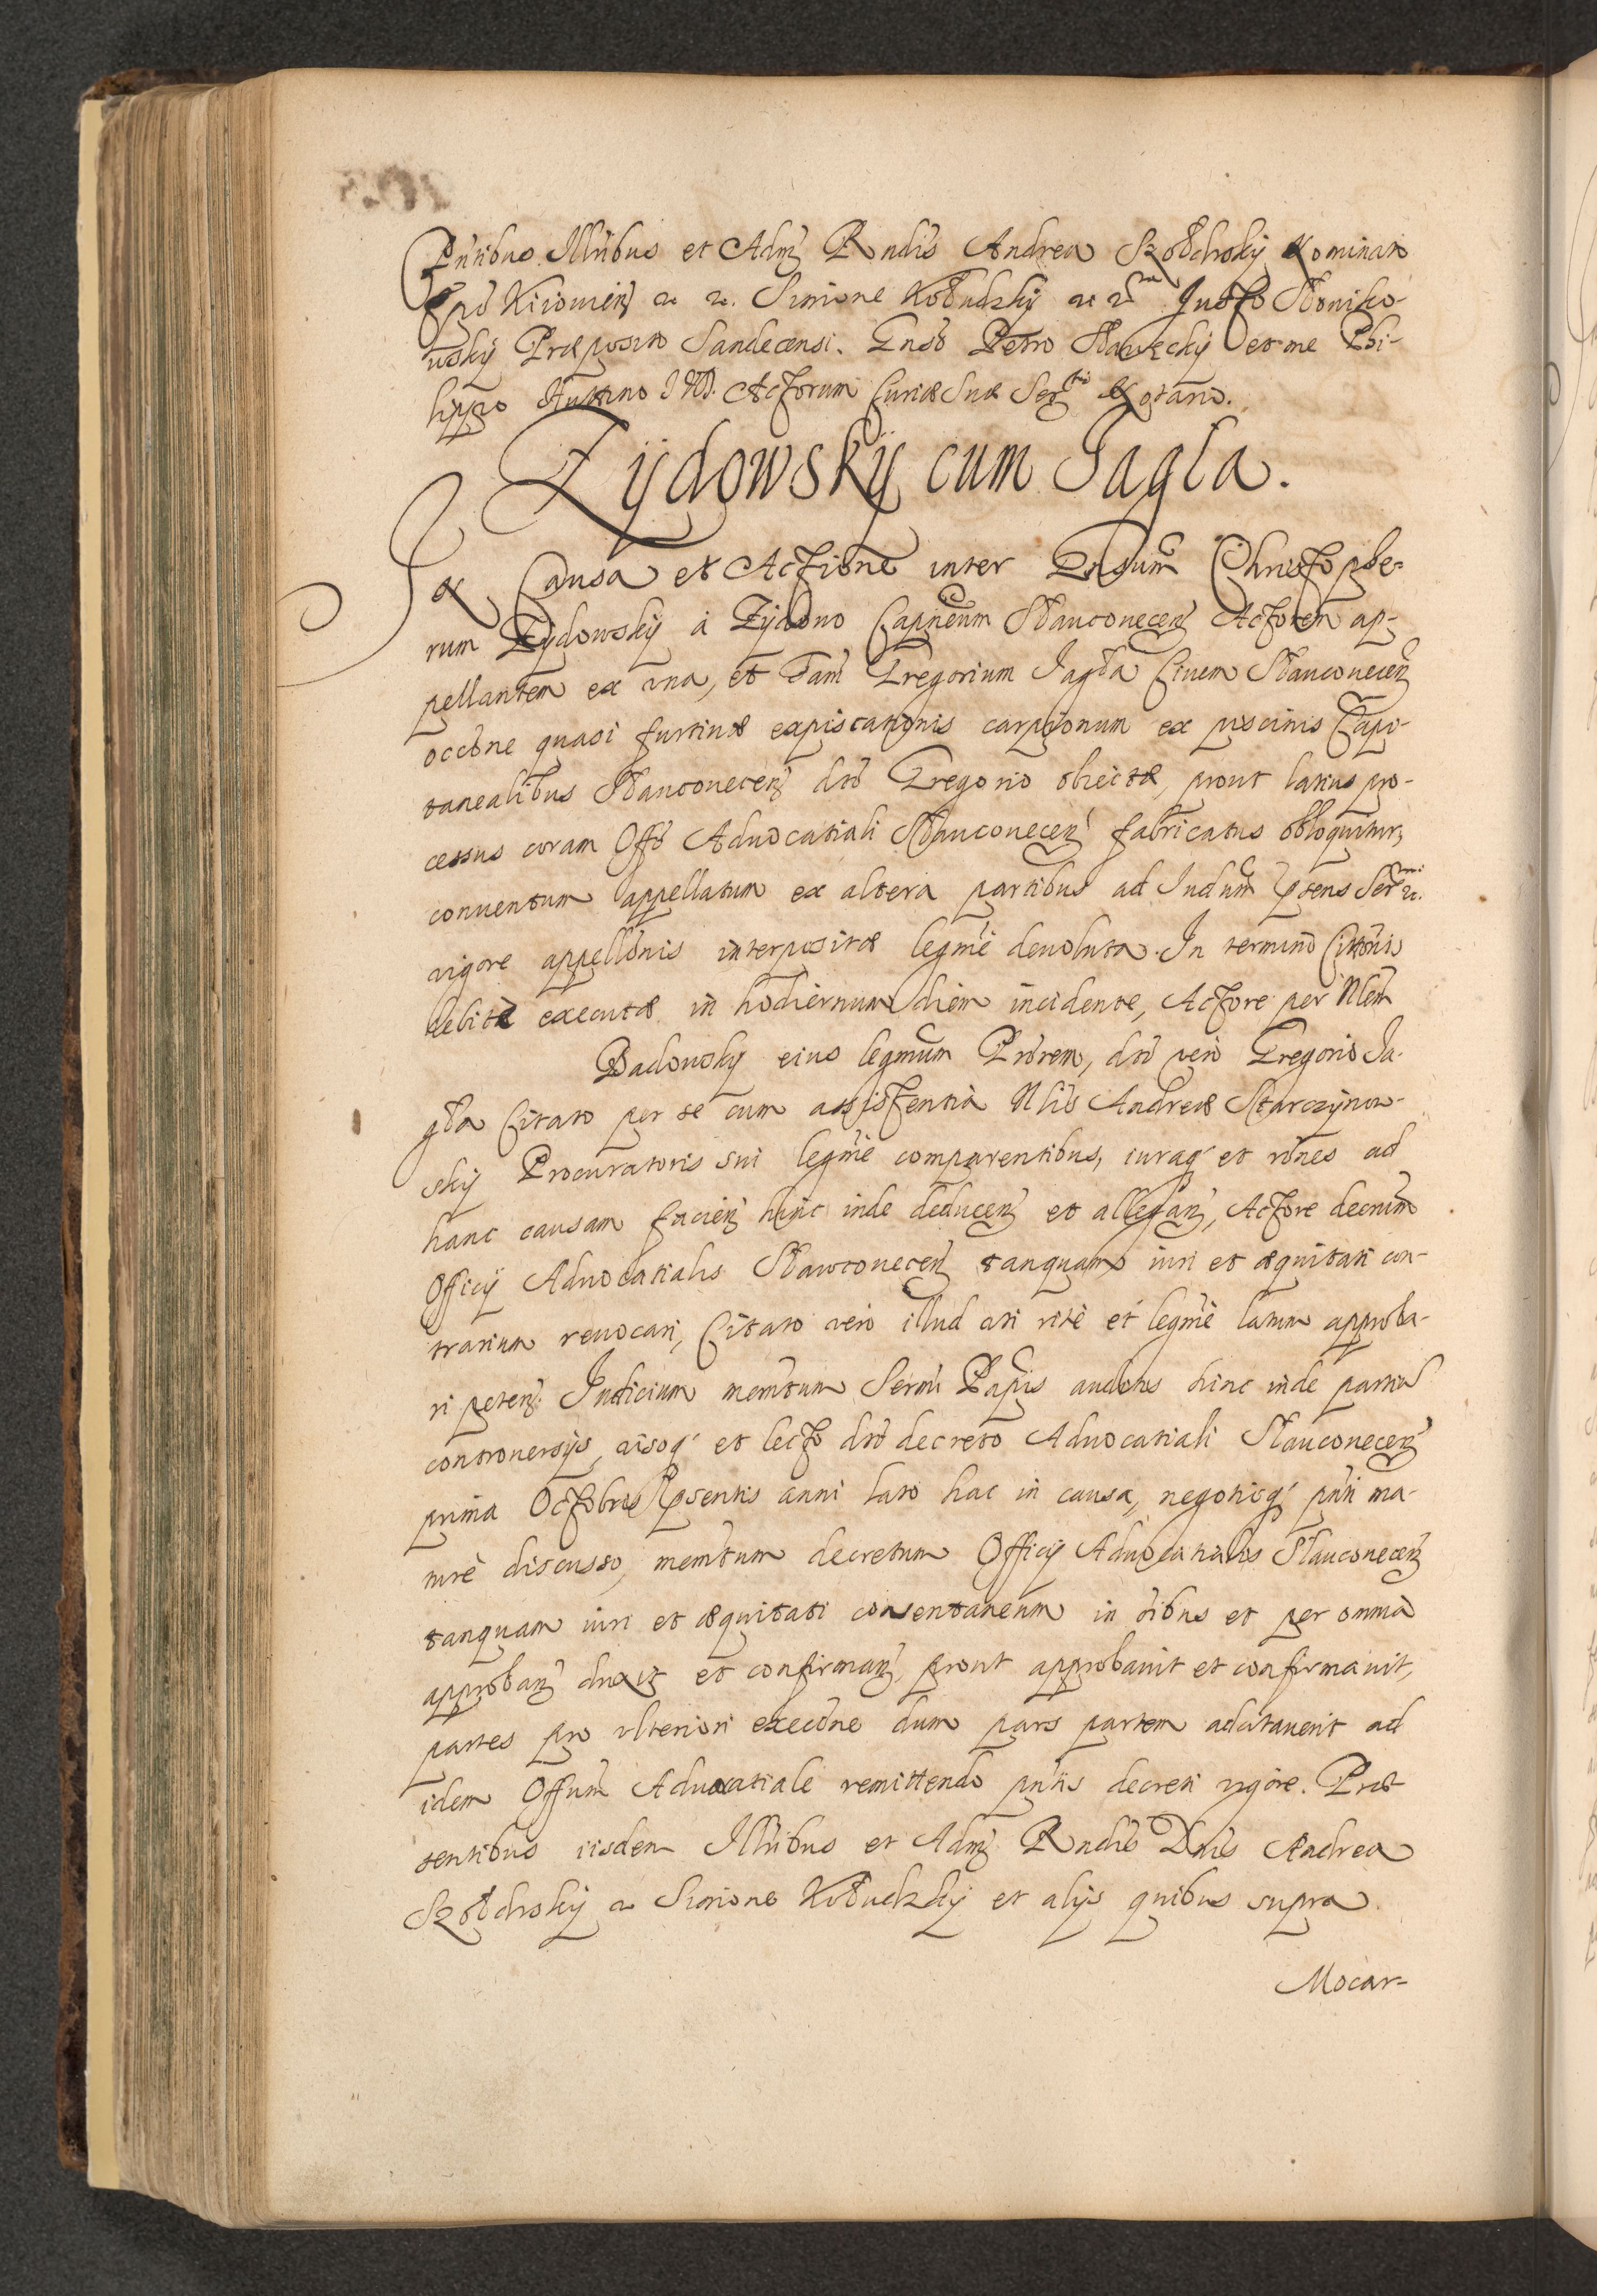 Pntibus Illribus et Adm Rndis Andrea Szołdrsky Nominato
Epo Kiiouien &c &c. Simione Kołudzky &c &c Justo Słoniko-
wsky Præposito Sandecensi. Gnso Petro Sławecky et me Phi-
lippo Huttino IVD. Actorum Curiæ Suæ Sertis Notario.
Zÿdowskÿ cum Jagła.
In Causa et Actione inter Gnsum Christophe-
rum Zydowsky à Zydowo Capneum Slauconecen Actorem ap-
pellantem ex vna, et Fam Gregorium Jagła Ciuem Slauconecen
occone quasi furtiuæ expiscationis carpionum ex piscinis Capi-
tanealibus Slauconecen dto Gregorio obiectæ, prout latius pro-
cessus coram Offo Aduocatiali Slauconecen fabricatus obloquitur,
conuentum appellatum ex altera partibus ad Indum psens Sermi &c.
vigore appellonis interpositæ legme deuoluta. In termino Cittonis
debitè executæ in hodiernum diem incidente, Actore per Nlem
Badowsky eius legmum Prorem, dto vero Gregorio Ja-
gła Citato per se cum assistentia Nlis Andreæ Starczynow-
sky Procuratoris sui legme comparentibus, iuraq et rones ad
hanc causam facien hinc inde deducen et allegan, Actore decrum
Officij Aduocatialis Slawconecen tanquam iuri et æquitati con-
trarium reuocari, Citato vero illud uti ritè et legmè latum approba-
ri peten. Iudicium memtum Sermi Papis auditis hinc inde partiu
controuersijs, visoq et lecto dto decreto Aduocatiali Slauconecen
prima Octobris psentis anni lato hac in causa, negotioq pnti ma-
turè discusso, memtum decretum Officij Aduocatialis Slauconecen
tanquam iuri et æquitati consentaneum in oibus et per omnia
approban duxit et confirman, prout approbauit et confirmauit,
partes pro vlteriori execone dum pars partem adcitauerit ad
idem Offum Aduocatiale remittendo pntis decreti vigore. Præ-
sentibus iisdem Illribus et Adm Rndis Dnis Andrea
Szołdrsky &c Simione Kołudzky et alijs quibus supra.
Mocar-